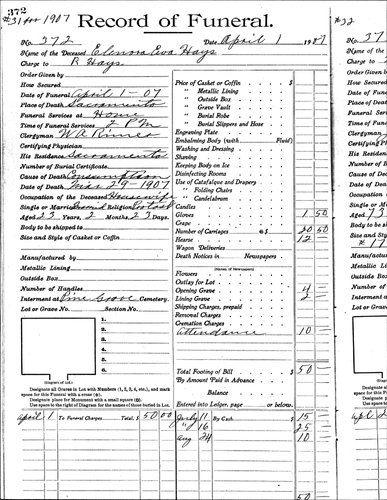 372
Record of Funeral.
No. 372 Date April 1 1907
Name of the Deceased Elenora Eva Hays
Charge to R Hays
Order Given by
How Secured
Date of Funeral April 1-07
Place of Death Sacramento
Funeral Services at Home
Time of Funeral Services 2 PM
Clergyman W A
Certifying Physician
His Residence Sacramento
Number of Burial Certificate
Cause of Death Consumption
Date of Death Mar 29-1907
Occupation of the Deceased Housewife
Single or Married Religion
Aged 23 Years, 2 Months, 23 Days.
Body to be shipped to
Size and Style of Casket or Coffin
Manufactured by
Metallic Lining
Outside Box
Number of Handles
Interment at Pine Grove Cemetery.
Lot or Grave No. Section No.
1.
2.
3.
4.
5.
6.
(Diagram of Lot.)
Designate all Graves in Lot with Numbers (1, 2, 3, 4, etc.), and mark
space for this Funeral with a cross (+).
Designate place for Monument with a small square (□).
Use space to right of Diagram for the names of those buried in Lot.
Price of Casket or Coffin $
" Metallic Lining
" Outside Box
" Grave Vault
" Burial Robe
" Burial Slippers and Hose
Engraving Plate
Embalming Body (with Fluid)
Washing and Dressing
Shaving
Keeping Body on Ice
Disinfecting Rooms
Use of Catafalque and Drapery
" Folding Chairs
" Candelabrum
Candles
Gloves 1 50
Crape
Number of Carriages @ $ 20 50
Hearse 12
Wagon Deliveries
Death Notices in Newspapers
(Names of Newspapers)
Flowers
Outlay for Lot
Opening Grave 4 —
Lining Grave 2 —
Shipping Charges, prepaid
Removal Charges
Cremation Charges
Attendance 10 —
Total Footing of Bill $ 50 —
By Amount Paid in Advance
Balance
Entered into Ledger, page or below.
April 1 To Funeral Charges Total, $ 50 00
July 11 By Cash $ 15
" 16 25
Aug 24 10
50